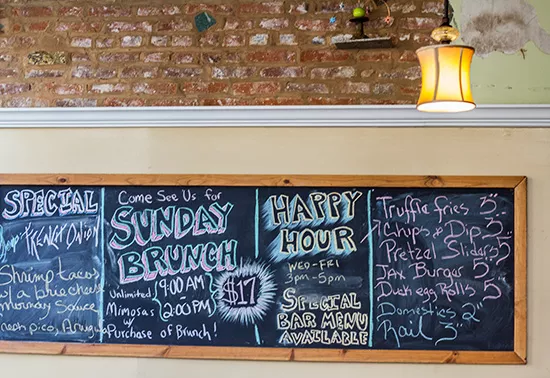 SPECIAL
FRENCH ONION
Shrimp tacos
w/ a brie cheese
Mornay Sauce
pico, Arugula
Come See Us for
SUNDAY
BRUNCH
9:00 AM -
2:00 PM
$17
Unlimited
Mimosas w/
Purchase of Brunch!
HAPPY
HOUR
WED-FRI
3pm-5pm
SPECIAL
BAR MENU
AVAILABLE
Truffle fries 5
Chips & Dip 5
Pretzel Sliders 5
Jax Burger 5
Duck egg Rolls 5
Domestics 2
Rail 3